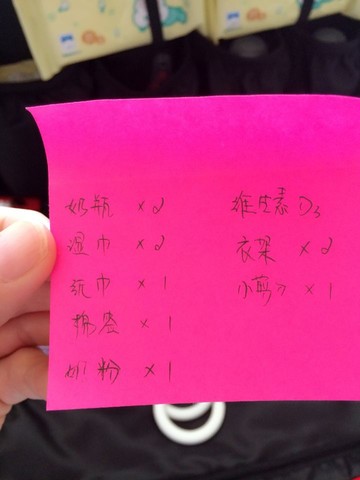 奶瓶 ×2
湿巾 ×2
沅巾 ×1
棉签 ×1
奶粉 ×1
维生素D3
衣架 ×2
小剪刀 ×1